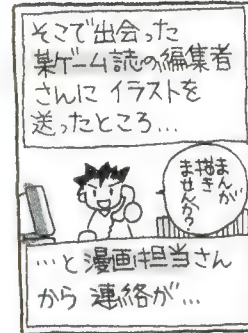 そこで出会った
某ゲーム誌の編集者
さんに イラストを
送ったところ…
まんが
描き
ませんか?
…と漫画担当さん
から 連絡が…